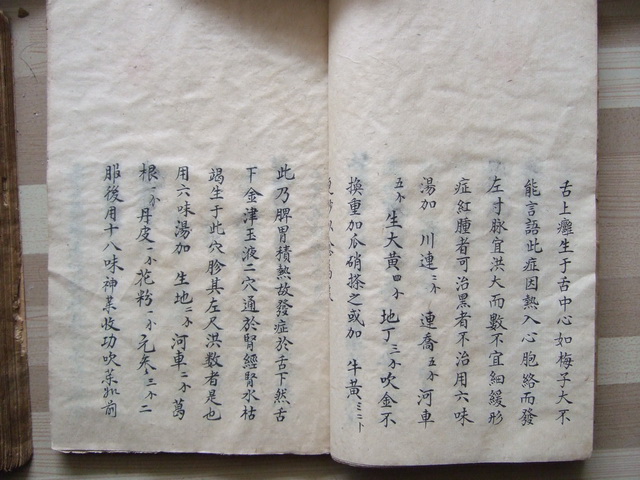 舌上癰生于舌中心如梅子大不
能言語此症因熱入心胞絡而發
左寸脉宜洪大而數不宜細緩形
症紅腫者可治黑者不治用六味
湯加 川連 二分 連喬 五分 河車
五分 生大黃 四分 地丁 三分 吹金不
換重加瓜硝搽之或加 牛黃
此乃脾胃積熱故發症於舌下然舌
下金津玉液二穴通於腎經腎水枯
竭生于此穴胗其左尺洪数者是也
用六味湯加 生地 二分 河車 二分 萬
根 一分 丹皮 一分 花粉 一分 元参 三分 二
服後用十八味神藥收功吹藥如前